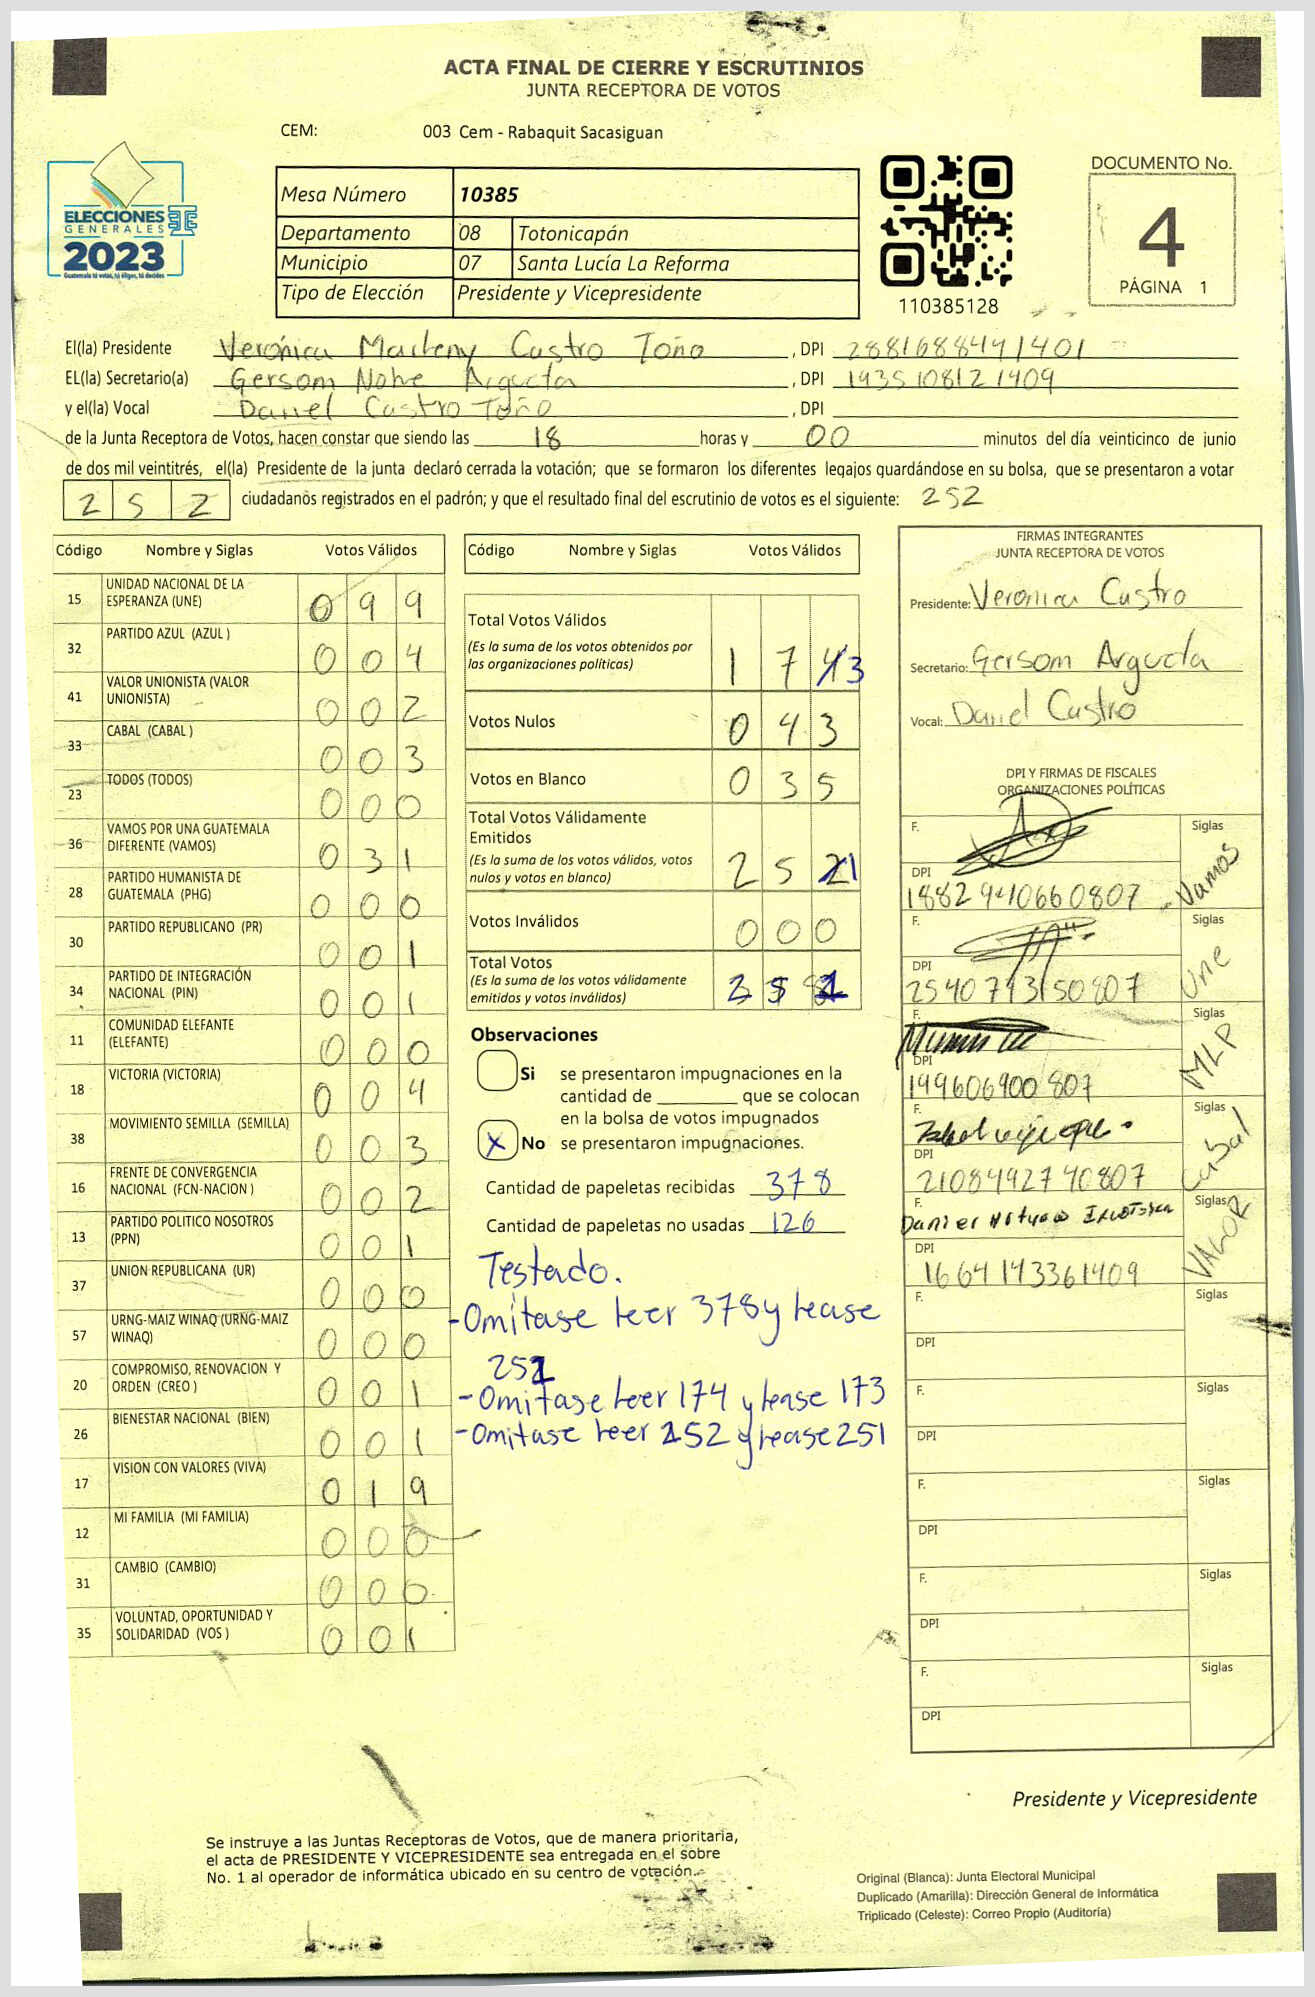 ACTA FINAL DE CIERRE Y ESCRUTINIOS
JUNTA RECEPTORA DE VOTOS
CEM: 003 Cem - Rabaquit Sacasiguan
ELECCIONES
GENERALES
2023
Guatemala tú votas, tú eliges, tú decides
Mesa Número 10385
Departamento 08 Totonicapán
Municipio 07 Santa Lucía La Reforma
Tipo de Elección Presidente y Vicepresidente
110385128
DOCUMENTO No.
4
PÁGINA 1
El(la) Presidente Verónica Marleny Castro Toño , DPI 2881688441401
EL(la) Secretario(a) Gersom Nohe Argueta , DPI 1935108121409
y el(la) Vocal Daniel Castro Toño , DPI
de la Junta Receptora de Votos, hacen constar que siendo las 18 horas y 00 minutos del día veinticinco de junio
de dos mil veintitrés, el(la) Presidente de la junta declaró cerrada la votación; que se formaron los diferentes legajos guardándose en su bolsa, que se presentaron a votar
252 ciudadanos registrados en el padrón; y que el resultado final del escrutinio de votos es el siguiente: 252
Código Nombre y Siglas Votos Válidos
15 UNIDAD NACIONAL DE LA ESPERANZA (UNE) 099
32 PARTIDO AZUL (AZUL ) 004
41 VALOR UNIONISTA (VALOR UNIONISTA) 002
33 CABAL (CABAL ) 003
23 TODOS (TODOS) 000
36 VAMOS POR UNA GUATEMALA DIFERENTE (VAMOS) 031
28 PARTIDO HUMANISTA DE GUATEMALA (PHG) 000
30 PARTIDO REPUBLICANO (PR) 001
34 PARTIDO DE INTEGRACIÓN NACIONAL (PIN) 001
11 COMUNIDAD ELEFANTE (ELEFANTE) 000
18 VICTORIA (VICTORIA) 004
38 MOVIMIENTO SEMILLA (SEMILLA) 003
16 FRENTE DE CONVERGENCIA NACIONAL (FCN-NACION ) 002
13 PARTIDO POLITICO NOSOTROS (PPN) 001
37 UNION REPUBLICANA (UR) 000
57 URNG-MAIZ WINAQ (URNG-MAIZ WINAQ) 000
20 COMPROMISO, RENOVACION Y ORDEN (CREO ) 001
26 BIENESTAR NACIONAL (BIEN) 001
17 VISION CON VALORES (VIVA) 019
12 MI FAMILIA (MI FAMILIA) 000
31 CAMBIO (CAMBIO) 000
35 VOLUNTAD, OPORTUNIDAD Y SOLIDARIDAD (VOS ) 001
Código Nombre y Siglas Votos Válidos
Total Votos Válidos
(Es la suma de los votos obtenidos por
las organizaciones políticas) 1743
Votos Nulos 043
Votos en Blanco 035
Total Votos Válidamente
Emitidos
(Es la suma de los votos válidos, votos
nulos y votos en blanco) 2521
Votos Inválidos 000
Total Votos
(Es la suma de los votos válidamente
emitidos y votos inválidos) 251
Observaciones
Si se presentaron impugnaciones en la
cantidad de ________ que se colocan
en la bolsa de votos impugnados
X No se presentaron impugnaciones.
Cantidad de papeletas recibidas 378
Cantidad de papeletas no usadas 126
Testado.
-Omitase leer 378 y lease
251
-Omitase leer 174 y lease 173
-Omitase leer 252 y lease 251
FIRMAS INTEGRANTES
JUNTA RECEPTORA DE VOTOS
Presidente: Veronica Castro
Secretario: Gersom Argueta
Vocal: Daniel Castro
DPI Y FIRMAS DE FISCALES
ORGANIZACIONES POLÍTICAS
F. Siglas Vamos
DPI
1882940660807
F. Siglas Une
DPI
2540793150807
F. Siglas MLP
DPI
199606900807
F. Siglas Cabal
DPI
2108492740807
F. Siglas VALOR
DPI
1664143361409
F. Siglas
DPI
F. Siglas
DPI
F. Siglas
DPI
F. Siglas
DPI
F. Siglas
DPI
Presidente y Vicepresidente
Se instruye a las Juntas Receptoras de Votos, que de manera prioritaria,
el acta de PRESIDENTE Y VICEPRESIDENTE sea entregada en el sobre
No. 1 al operador de informática ubicado en su centro de votación.
Original (Blanca): Junta Electoral Municipal
Duplicado (Amarilla): Dirección General de Informática
Triplicado (Celeste): Correo Propio (Auditoría)